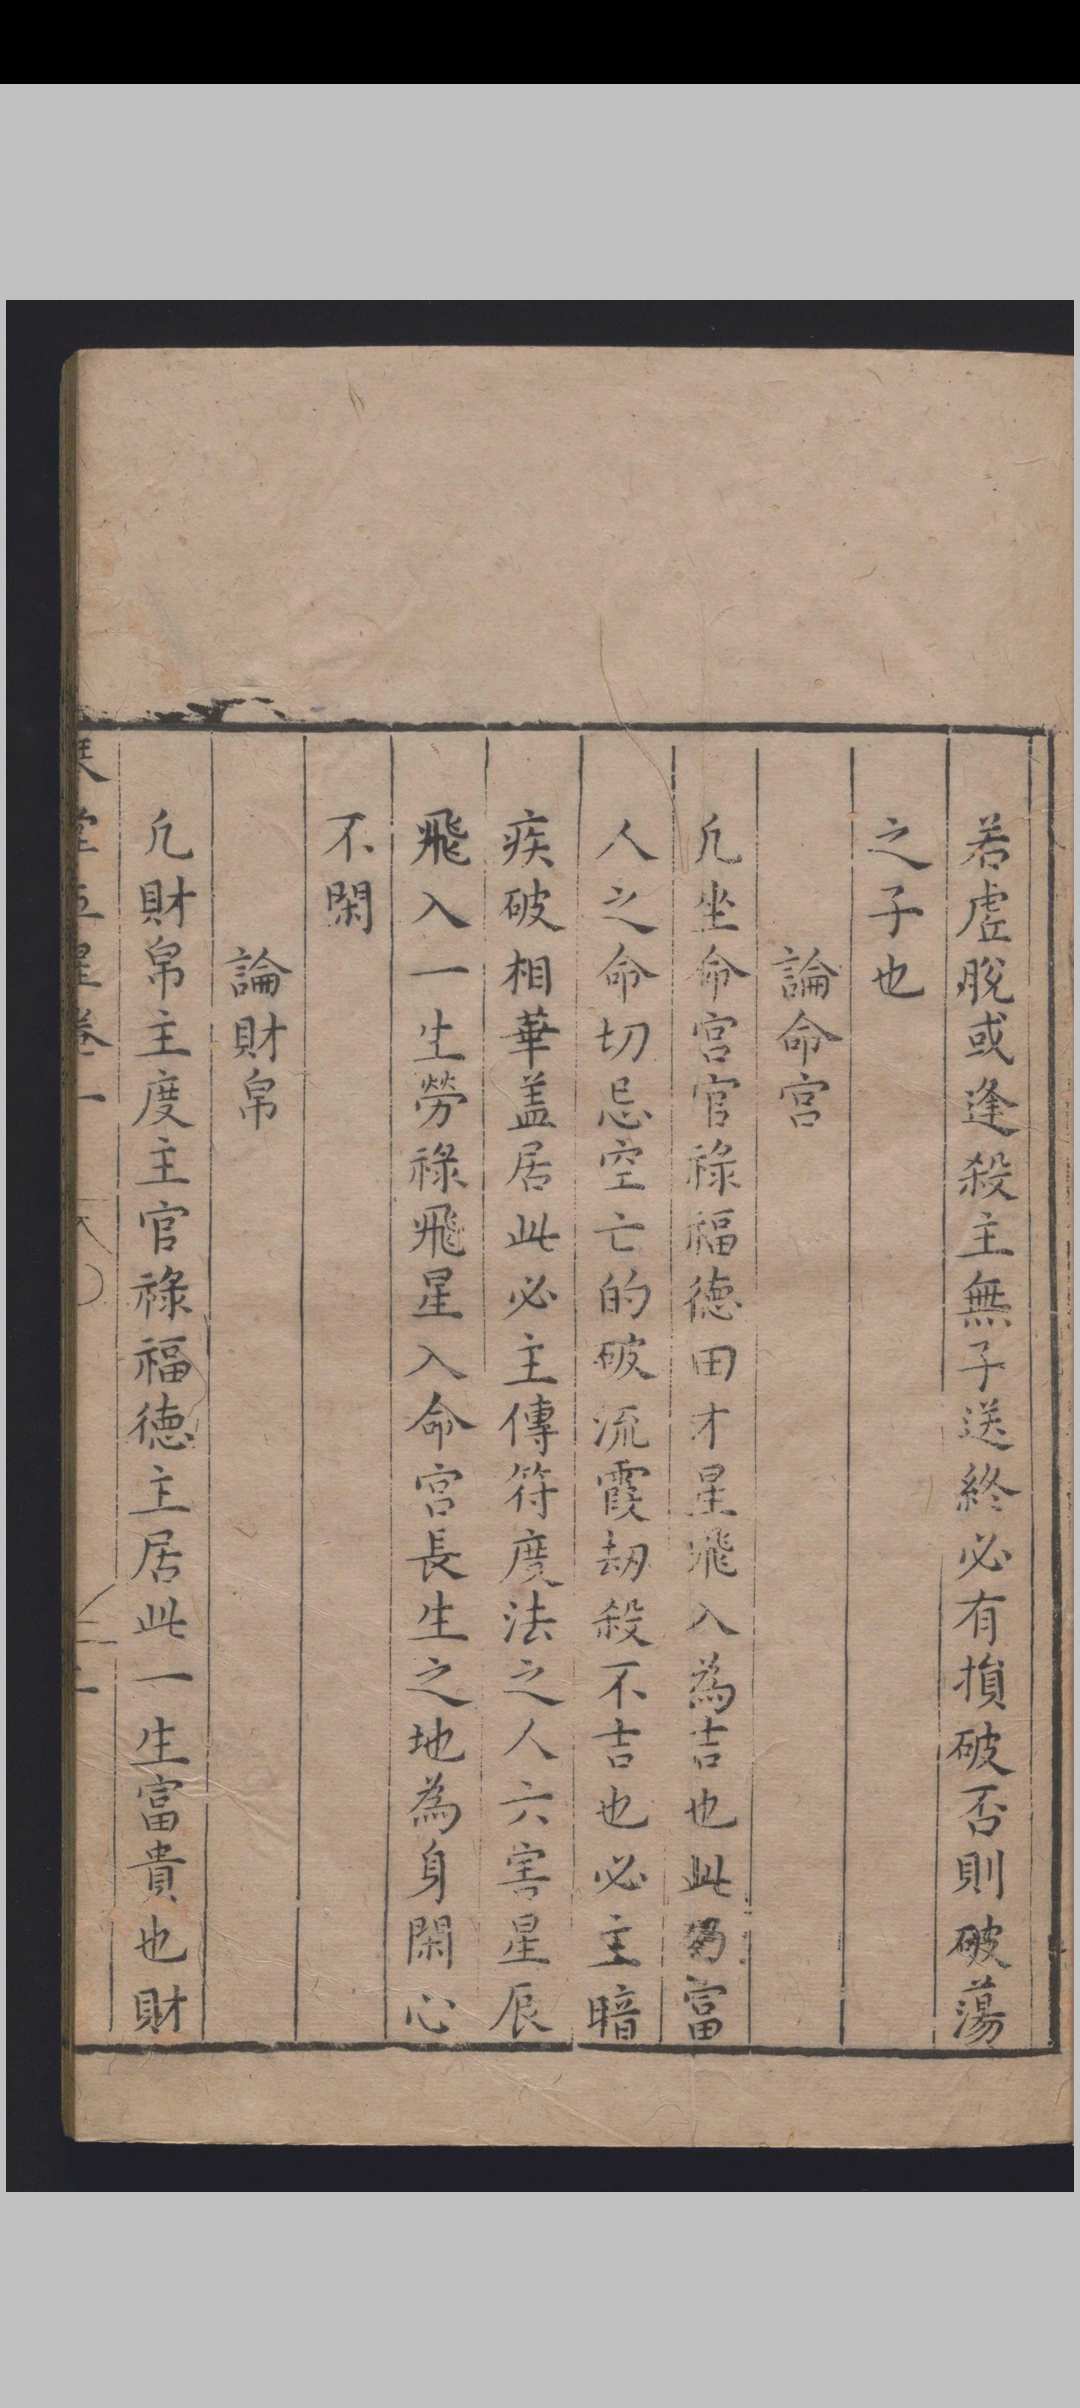 若虗脫或逢殺主無子送終必有損破否則破蕩
之子也
論命宮
凢坐命宮官祿福德田才星飛入為吉也此乃富
人之命切忌空亡的破流霞劫殺不吉也必主暗
疾破相華盖居此必主傳符度法之人六害星辰
飛入一生勞祿飛星入命宮長生之地為身閑心
不閑
論財帛
凢財帛主度主官祿福德主居此一生富貴也財
堂五星卷一